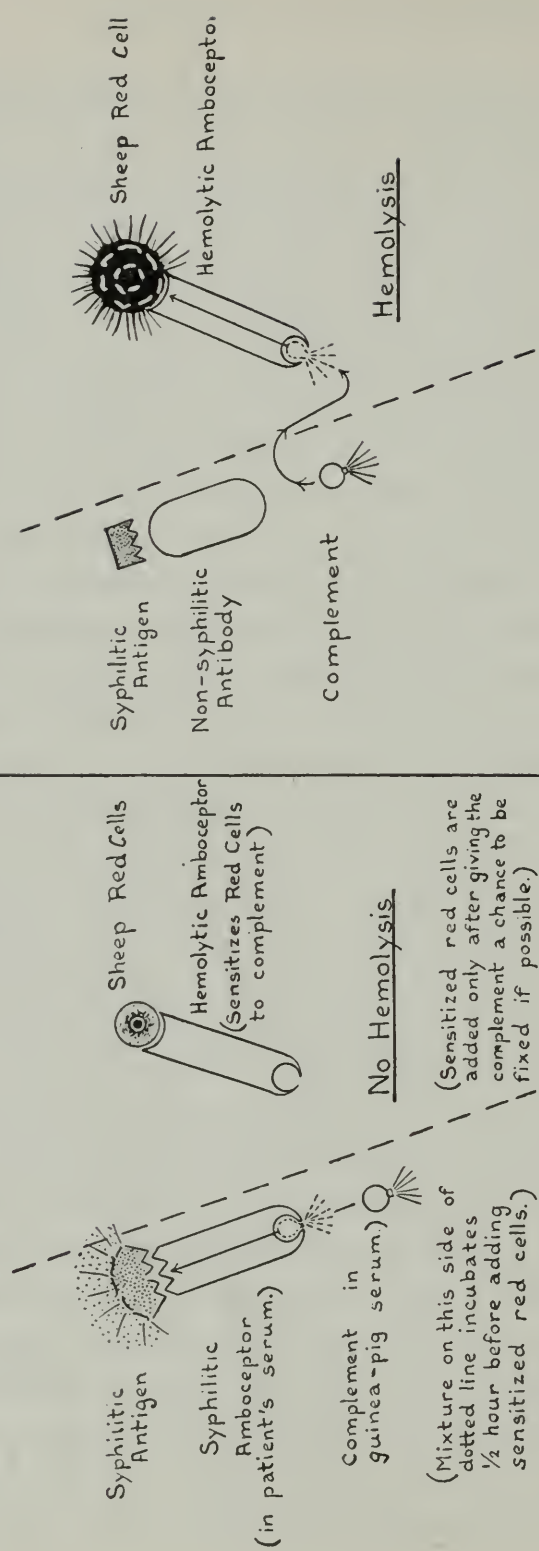 Syphilitic
Antigen
Syphilitic
Amboceptor
(in patient's serum.)
Complement in
guinea-pig serum.)
(Mixture on this side of
dotted line incubates
½ hour before adding
sensitized red cells.)
Sheep Red Cells
Hemolytic Amboceptor
(Sensitizes Red Cells
to complement)
No Hemolysis
(Sensitized red cells are
added only after giving the
complement a chance to be
fixed if possible.)
Syphilitic
Antigen
Non-syphilitic
Antibody
Complement
Sheep Red Cell
Hemolytic Amboceptor
Hemolysis